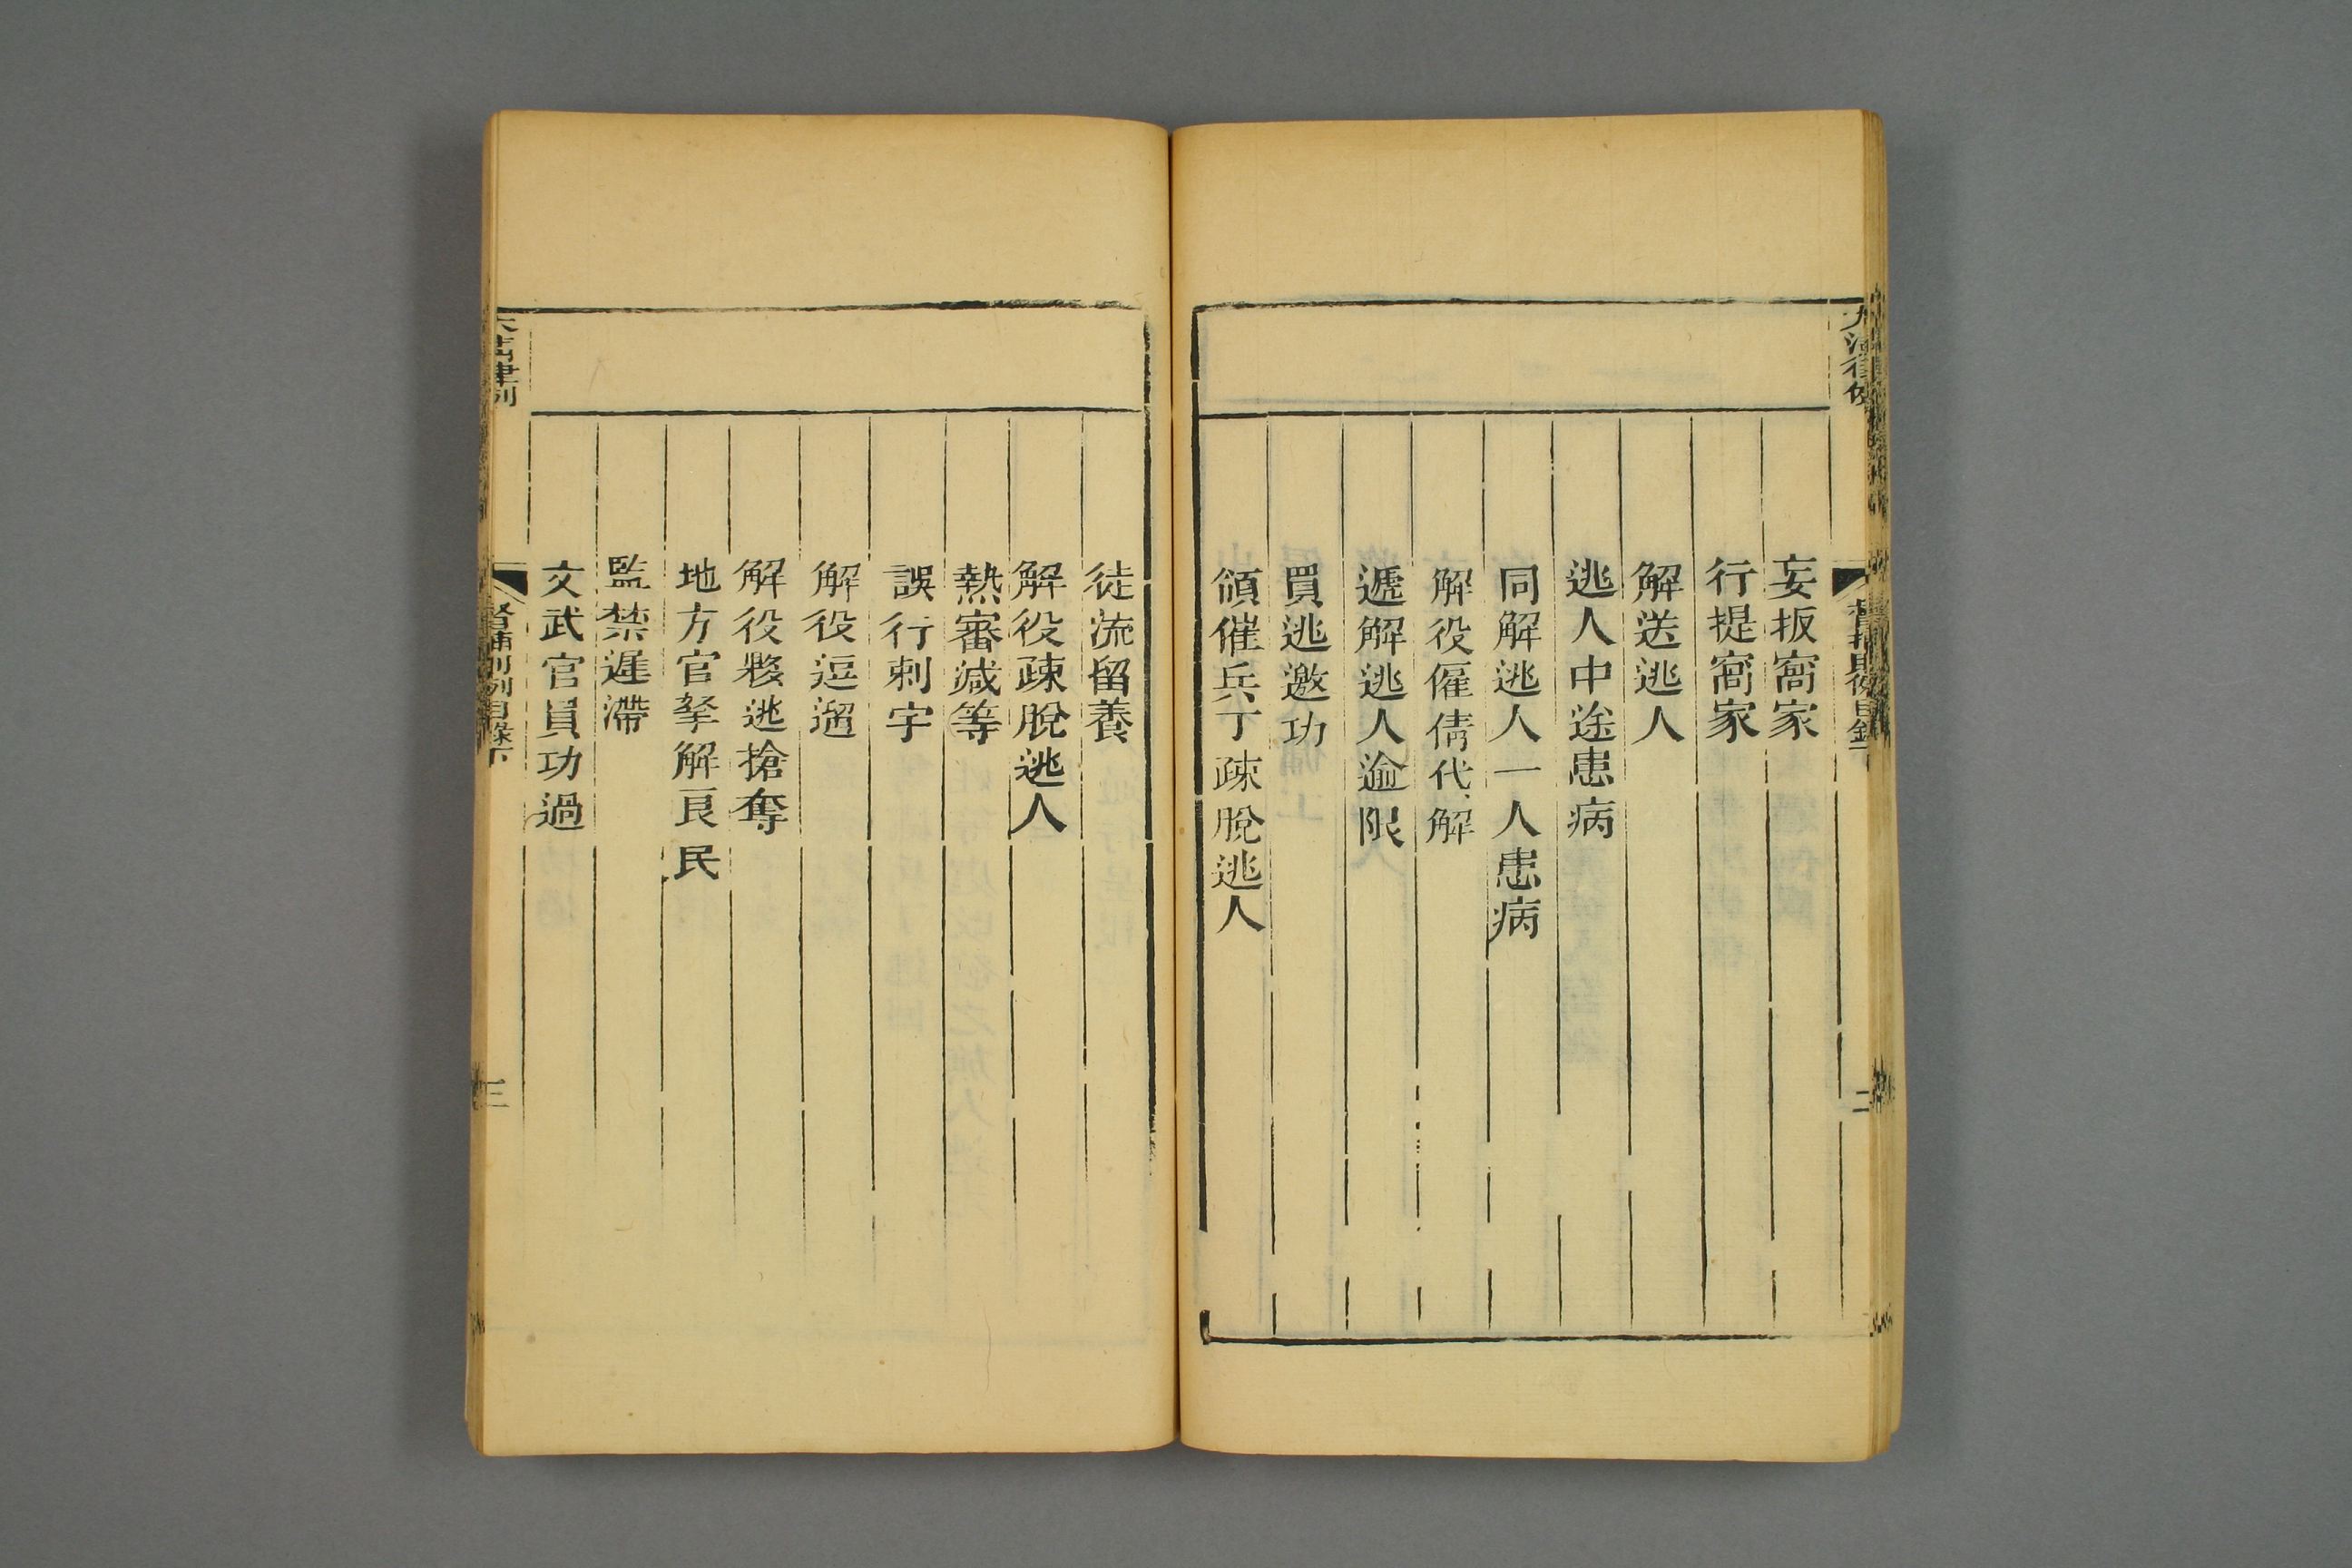 大清律例
督捕則例目錄下
二
妄扳窩家
行提窩家
解送逃人
逃人中途患病
同解逃人一人患病
解役僱倩代解
遞解逃人逾限
買逃邀功
領催兵丁疎脫逃人
徒流留養
解役疎脫逃人
熱審減等
誤行刺字
解役逗遛
解役夥逃搶奪
地方官拏解良民
監禁遲滯
文武官員功過
大清律例
督捕則例目錄下
三